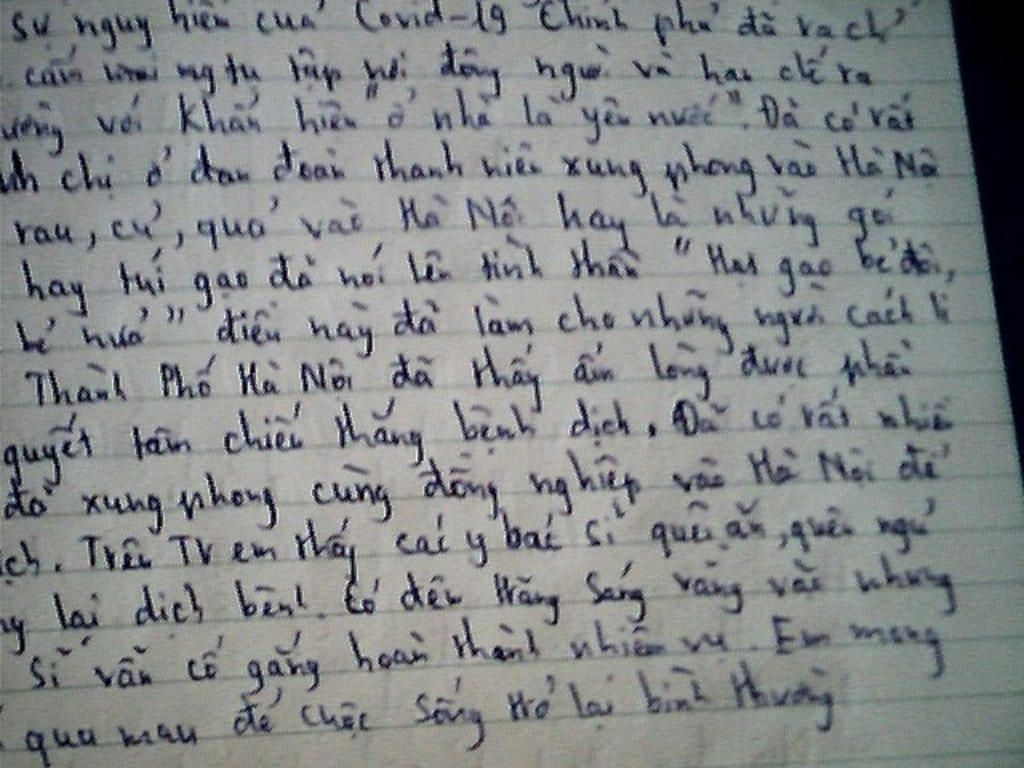 sự nguy hiểm của Covid-19 Chính phủ đã ra ch
cấm tụ tập nơi đông người và hạn chế ra
với Khẩu hiệu "ở nhà là yêu nước". Đã có rất
chị ở đoàn thanh niên xung phong vào Hà Nộ
rau, củ, quả vào Hà Nội hay là những gói
hay túi gạo đã nói lên tinh thần "Hạt gạo bẻ đôi,
bẻ nửa" điều này đã làm cho những người cách li
Thành Phố Hà Nội đã thấy ấm lòng được phần
quyết tâm chiến thắng bệnh dịch. Đã có rất nhiề
đã xung phong cùng đồng nghiệp vào Hà Nội để
ịch. Trên TV em thấy các y bác sĩ quên ăn, quên ngủ
lại dịch bệnh. Có đêm trắng sáng vằng vặc nhưng
sĩ vẫn cố gắng hoàn thành nhiệm vụ. Em mong
qua mau để cuộc sống trở lại bình thường